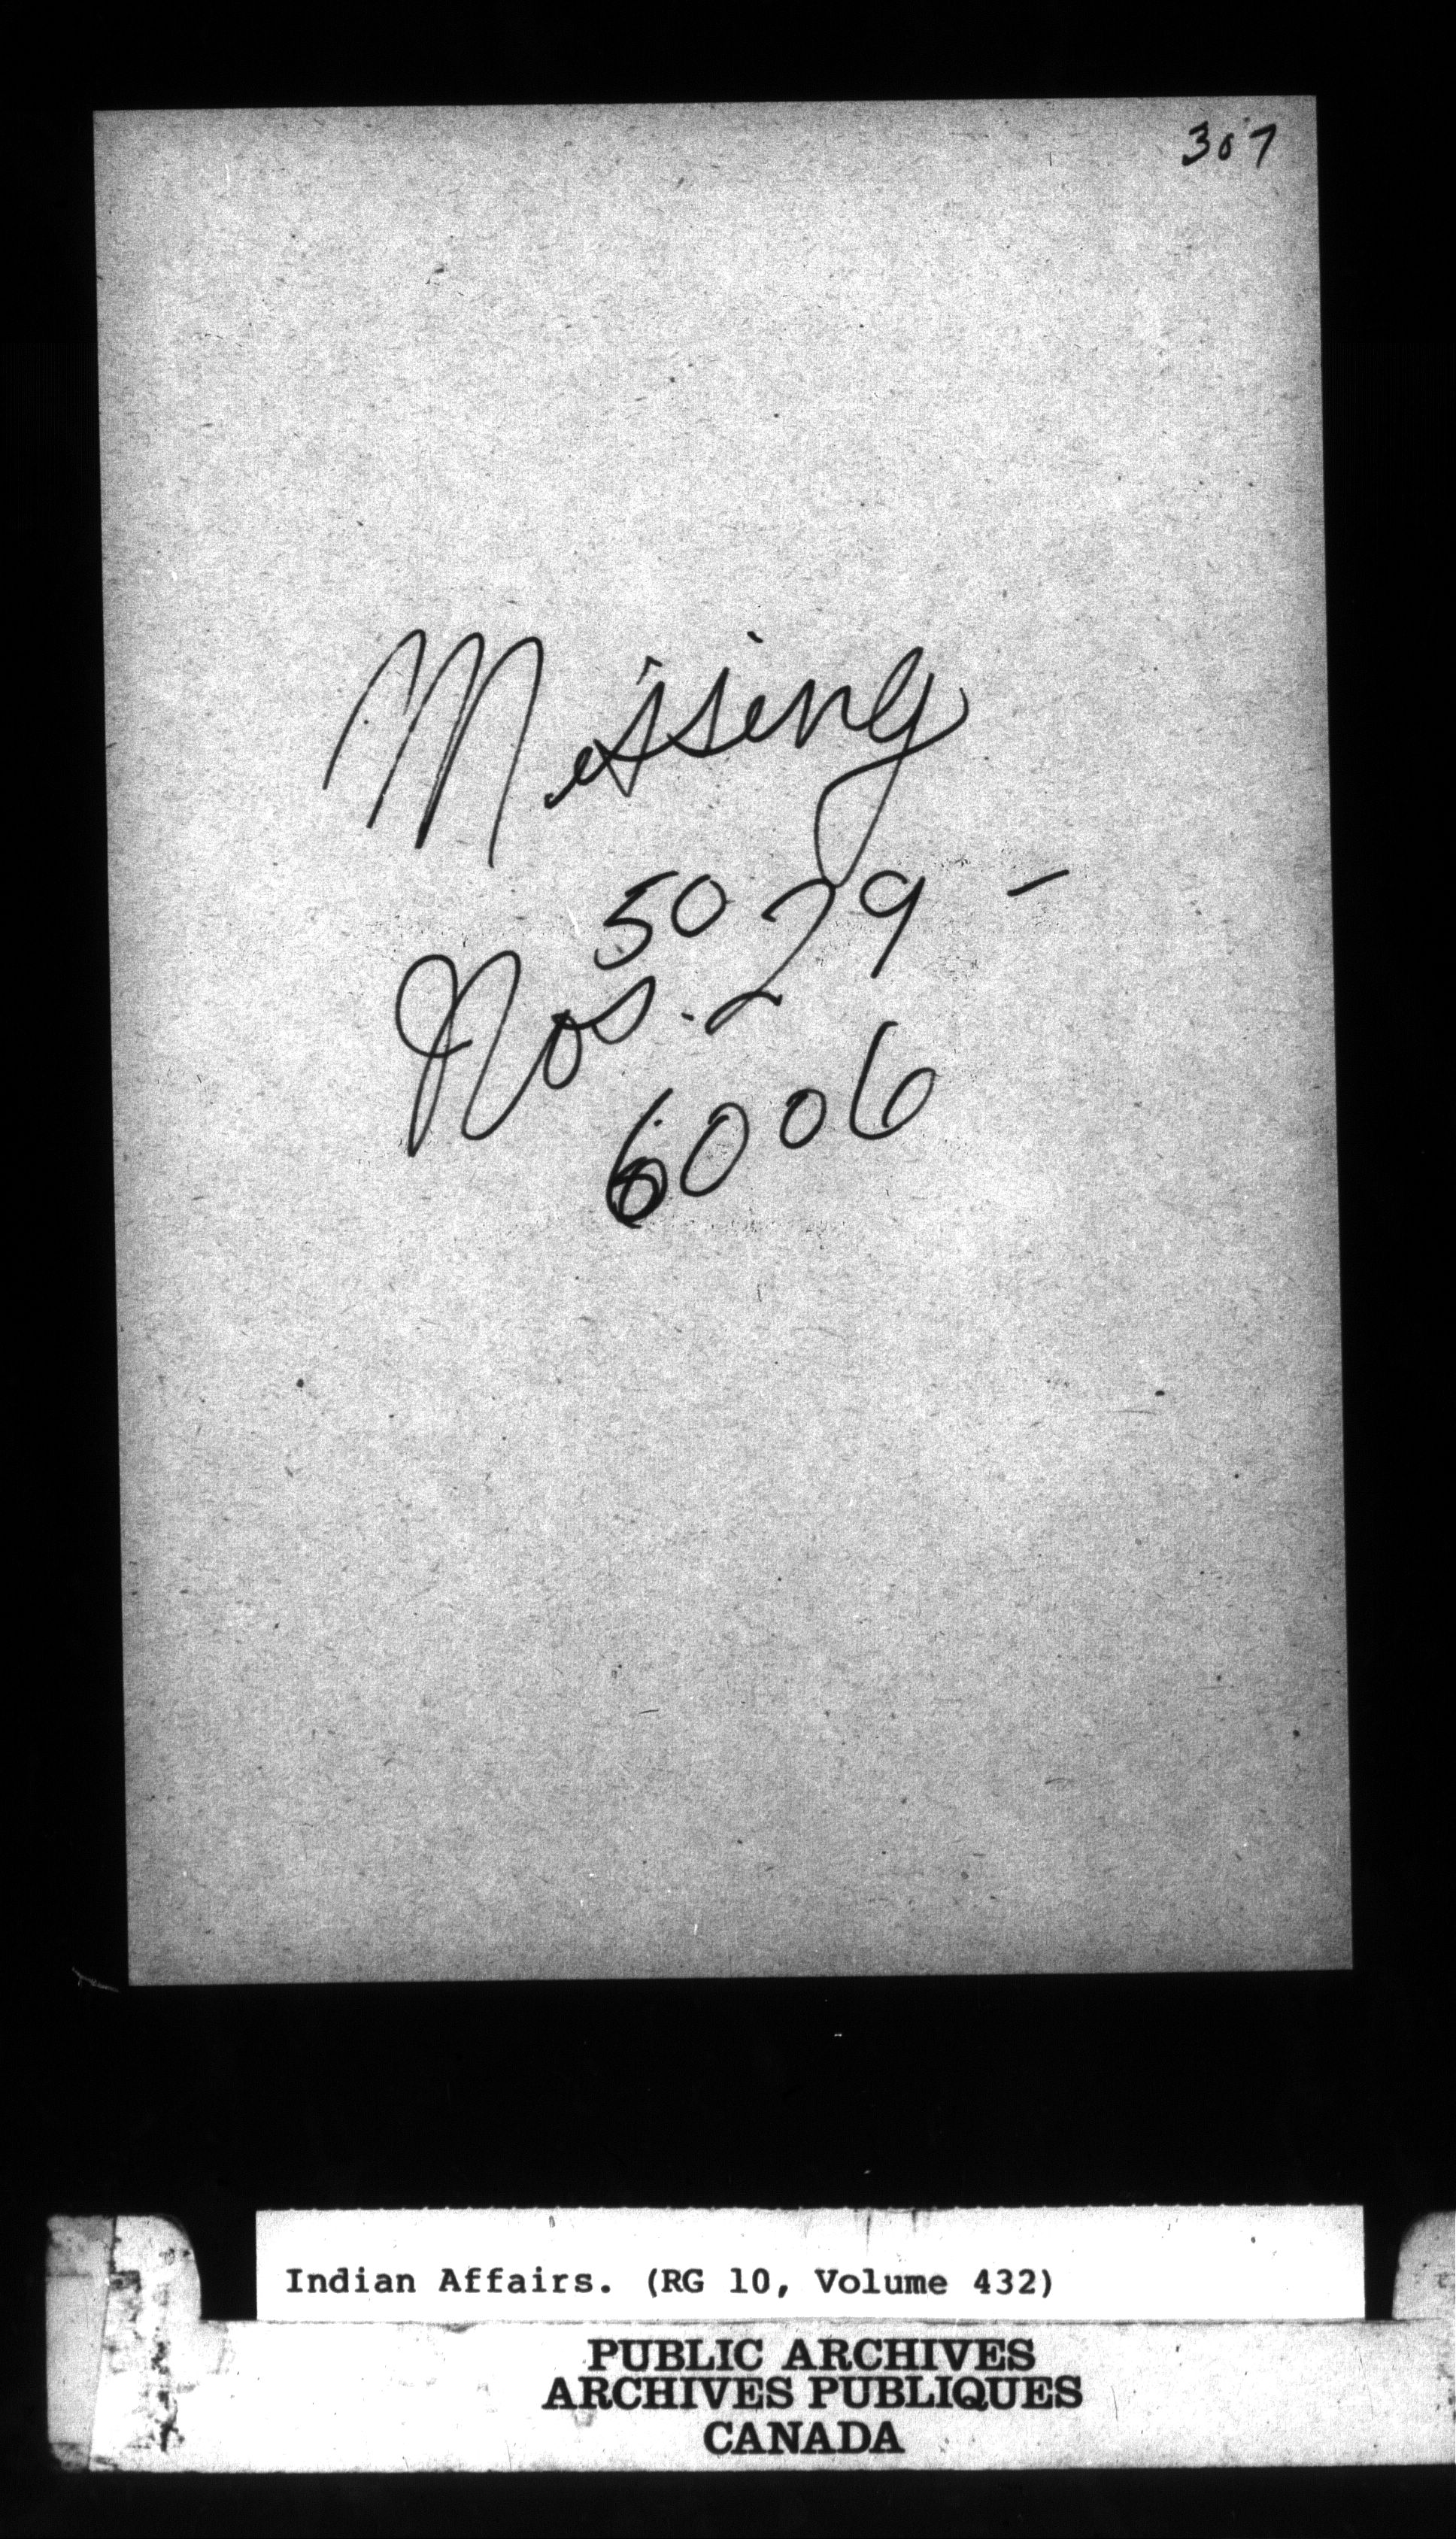 307
Missing
Nos. 5029 -
6006
Indian Affairs. (RG 10, Volume 432)
PUBLIC ARCHIVES
ARCHIVES PUBLIQUES
CANADA